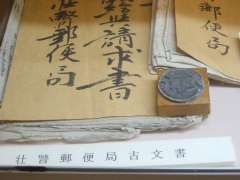 郵便局
請求書
郵便局
壮瞥郵便局古文書